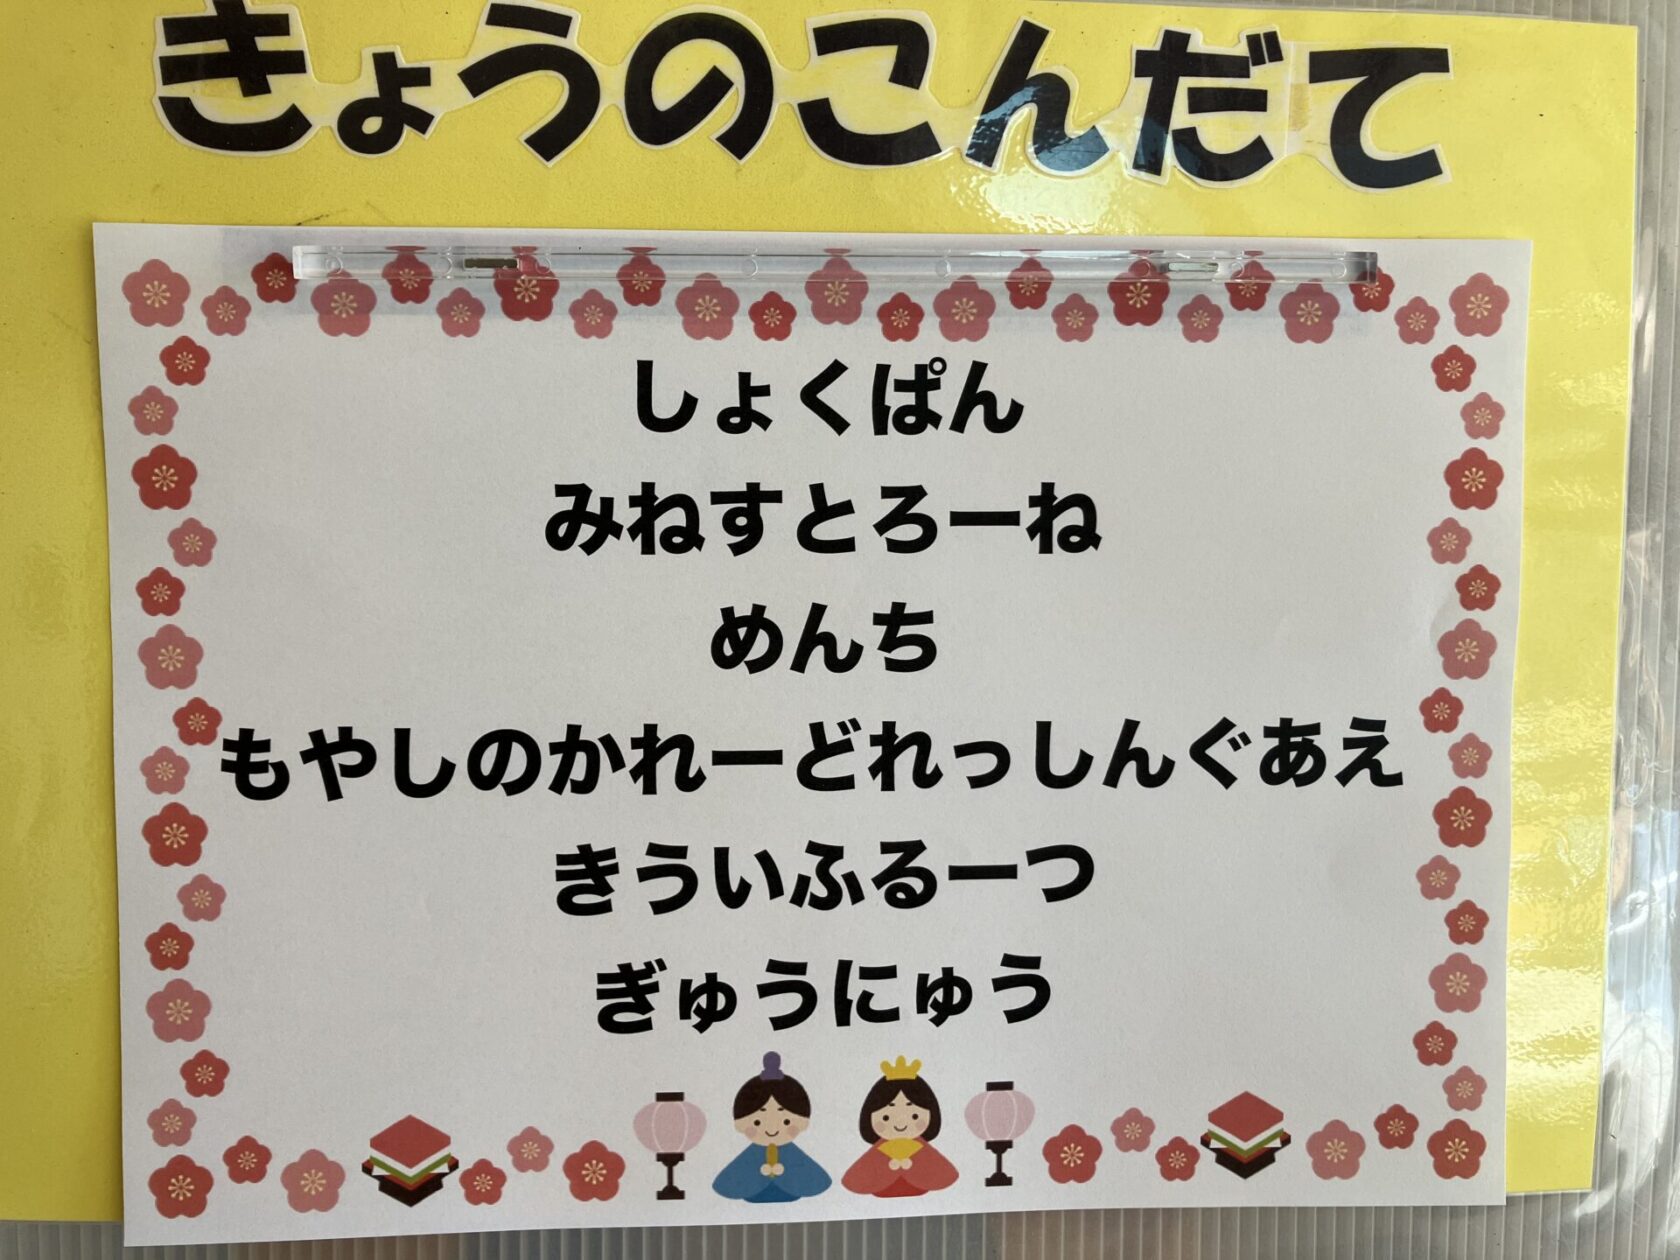 きょうのこんだて
しょくぱん
みねすとろーね
めんち
もやしのかれーどれっしんぐあえ
きういふるーつ
ぎゅうにゅう